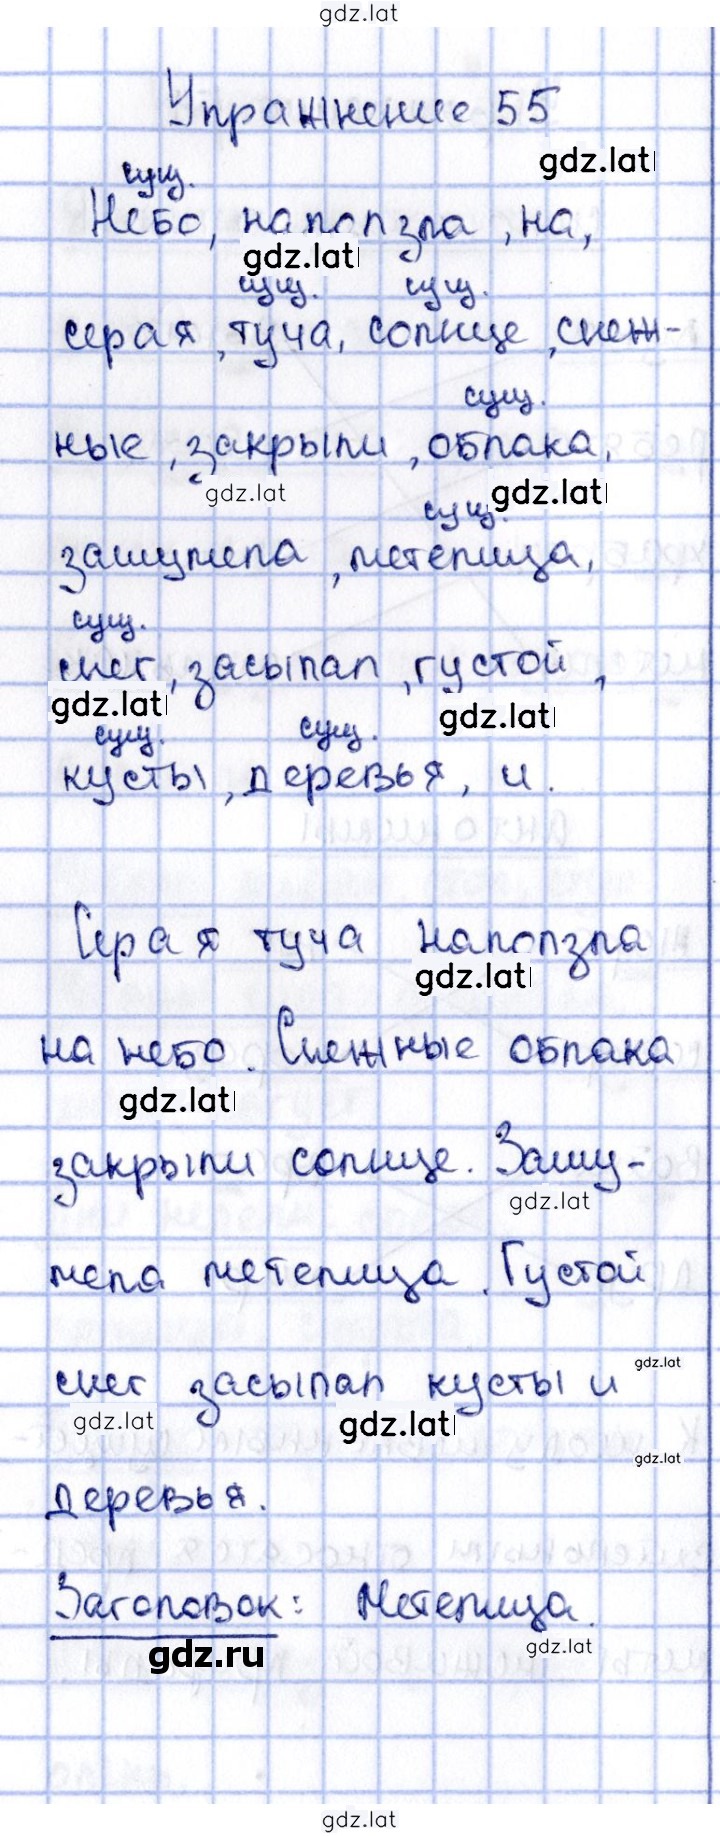 gdz.lat
Упражнение 55
gdz.lat
сущ.
Небо, наползла, на,
gdz.lat
сущ. сущ.
серая, туча, солнце, снеж-
сущ.
ные, закрыли, облака,
gdz.lat gdz.lat
сущ.
зашумела, метелица,
сущ.
снег, засыпал, густой,
gdz.lat gdz.lat
сущ. сущ.
кусты, деревья, и.
Серая туча наползла
gdz.lat
на небо. Снежные облака
gdz.lat
закрыли солнце. Зашу-
gdz.lat
мела метелица. Густой
gdz.lat
снег засыпал кусты и
gdz.lat gdz.lat
gdz.lat
деревья.
Заголовок: Метелица.
gdz.ru gdz.lat
gdz.lat